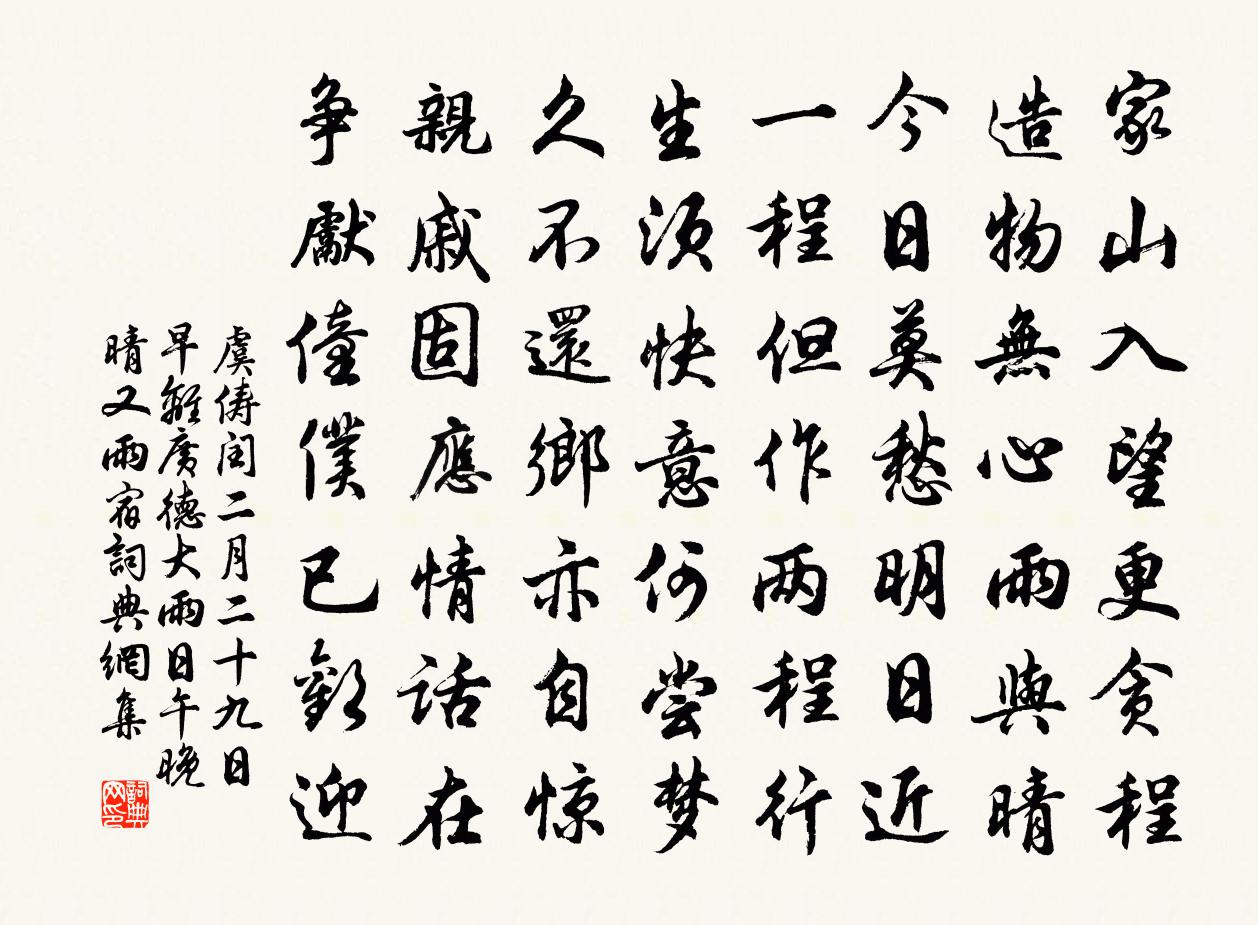 家山入望更贪程
造物無心雨與晴
今日莫愁明日近
一程但作两程行
生須快意何尝梦
久不還鄉亦自惊
親戚固應情話在
争獻僮僕已歡迎
虞俦闰二月二十九日
早離廣德大雨日午晚
晴又雨宿詞典網集
詞典网印